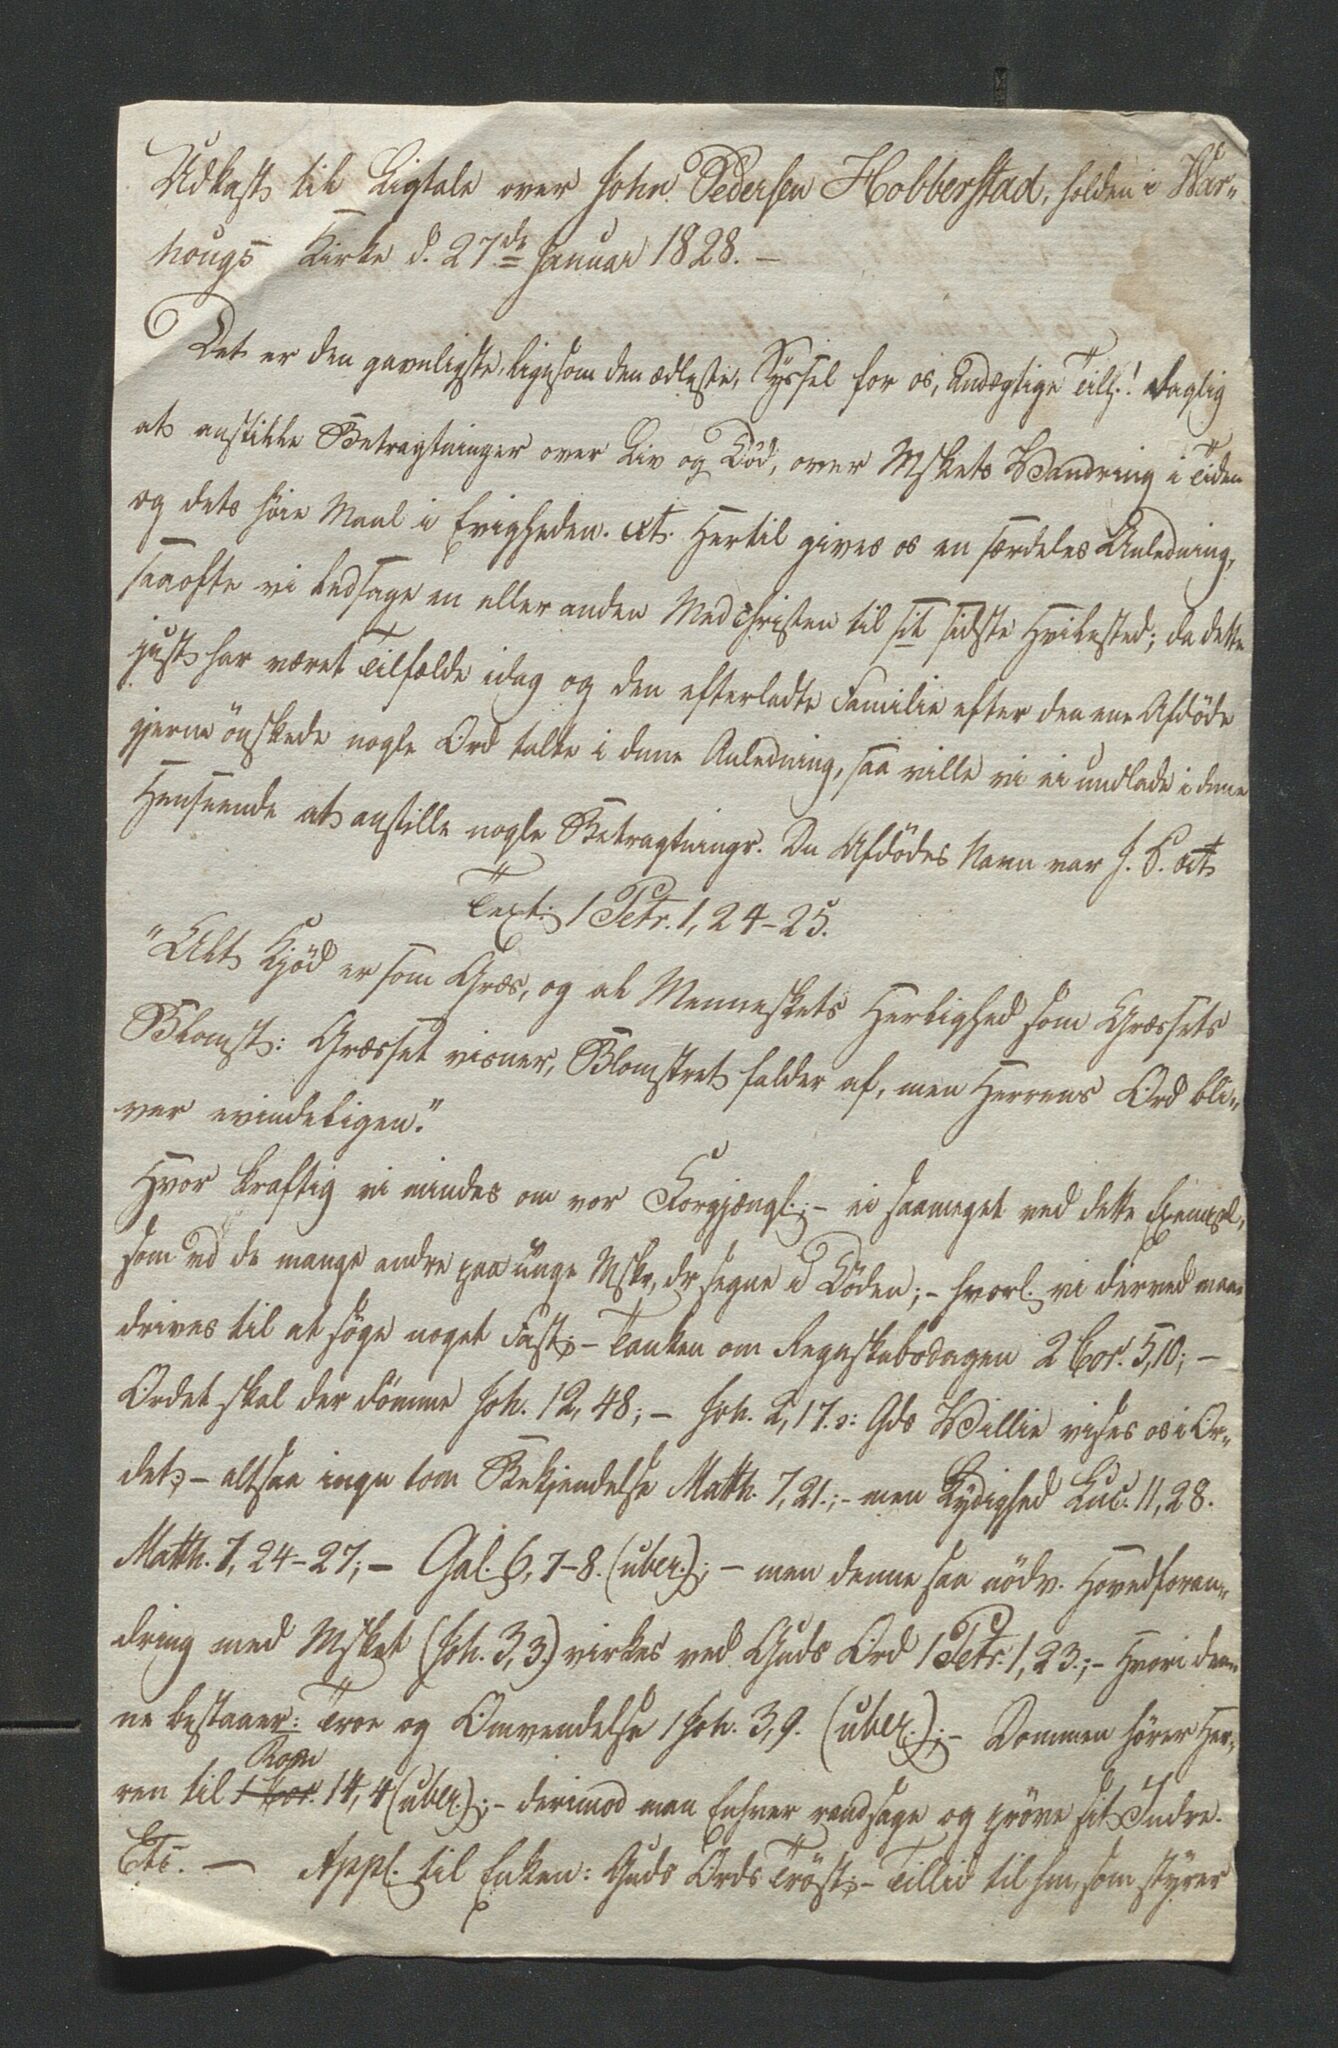 Udkast til Ligtale over John Pedersen Hobberstad, holden i War-
hougs Kirke d. 27de Januar 1828. —
Det er den gavnligste, ligesom den ædleste, Syssel for os, Andægtige Tilh.! daglig
at anstille Betragtninger over Liv og Død, over Mskets Vandring i Tiden
og dets høie Maal i Evigheden. etc. Hertil gives os en særdeles Anledning,
saaofte vi ledsage en eller anden Medchristen til sit sidste Hvilested; da dette
just har været Tilfælde idag og den efterladte Familie efter den ene Afdøde
gjerne önskede nogle Ord talte i denne Anledning, saa ville vi ei undlade i denne
Henseende at anstille nogle Betragtningr. Den Afdødes Navn var J. P. etc
Text: 1 Petr. 1, 24-25.
"Alt Kjöd er som Græs, og al Menneskets Herlighed som Græssets
Blomst: Græsset visner, Blomstret falder af, men Herrens Ord bli-
ver evindeligen."
Hvor kraftig vi mindes om vor Forgjængl.; - ei saameget ved dette Exempel,
som ved de mange andre paa unge Msker, dr segne i Döden; - hvorl. vi derved maae
drives til at söge noget Fast; - Tanken om Regnskabsdagen 2 Cor. 5,10; -
Ordet skal der dömme Joh. 12, 48; - Joh. 2, 17. ɔ: Gds Villie vises os i Or-
det; - altsaa ingen tom Bekjendelse Matth. 7, 21.; - men Lydighed Luc. 11, 28.
Matth. 7, 24-27; - Gal. 6, 7-8. (uber.); - men denne saa nödv. Hovedforan-
dring med Msket (Joh. 3, 3.) virkes ved Guds Ord 1 Petr. 1, 23.; - Hvori den-
ne bestaaer: Troe og Omvendelse 1 Joh. 3, 9. (uber.); - Dommen hörer Her-
ren til 1 Cor. Rom 14, 4 (uber.); - derimod maa Enhver randsage og pröve sit Indre.
Etc. — Appl. til Enken: Guds Ords Tröst; - Tillid til ham, som styrer